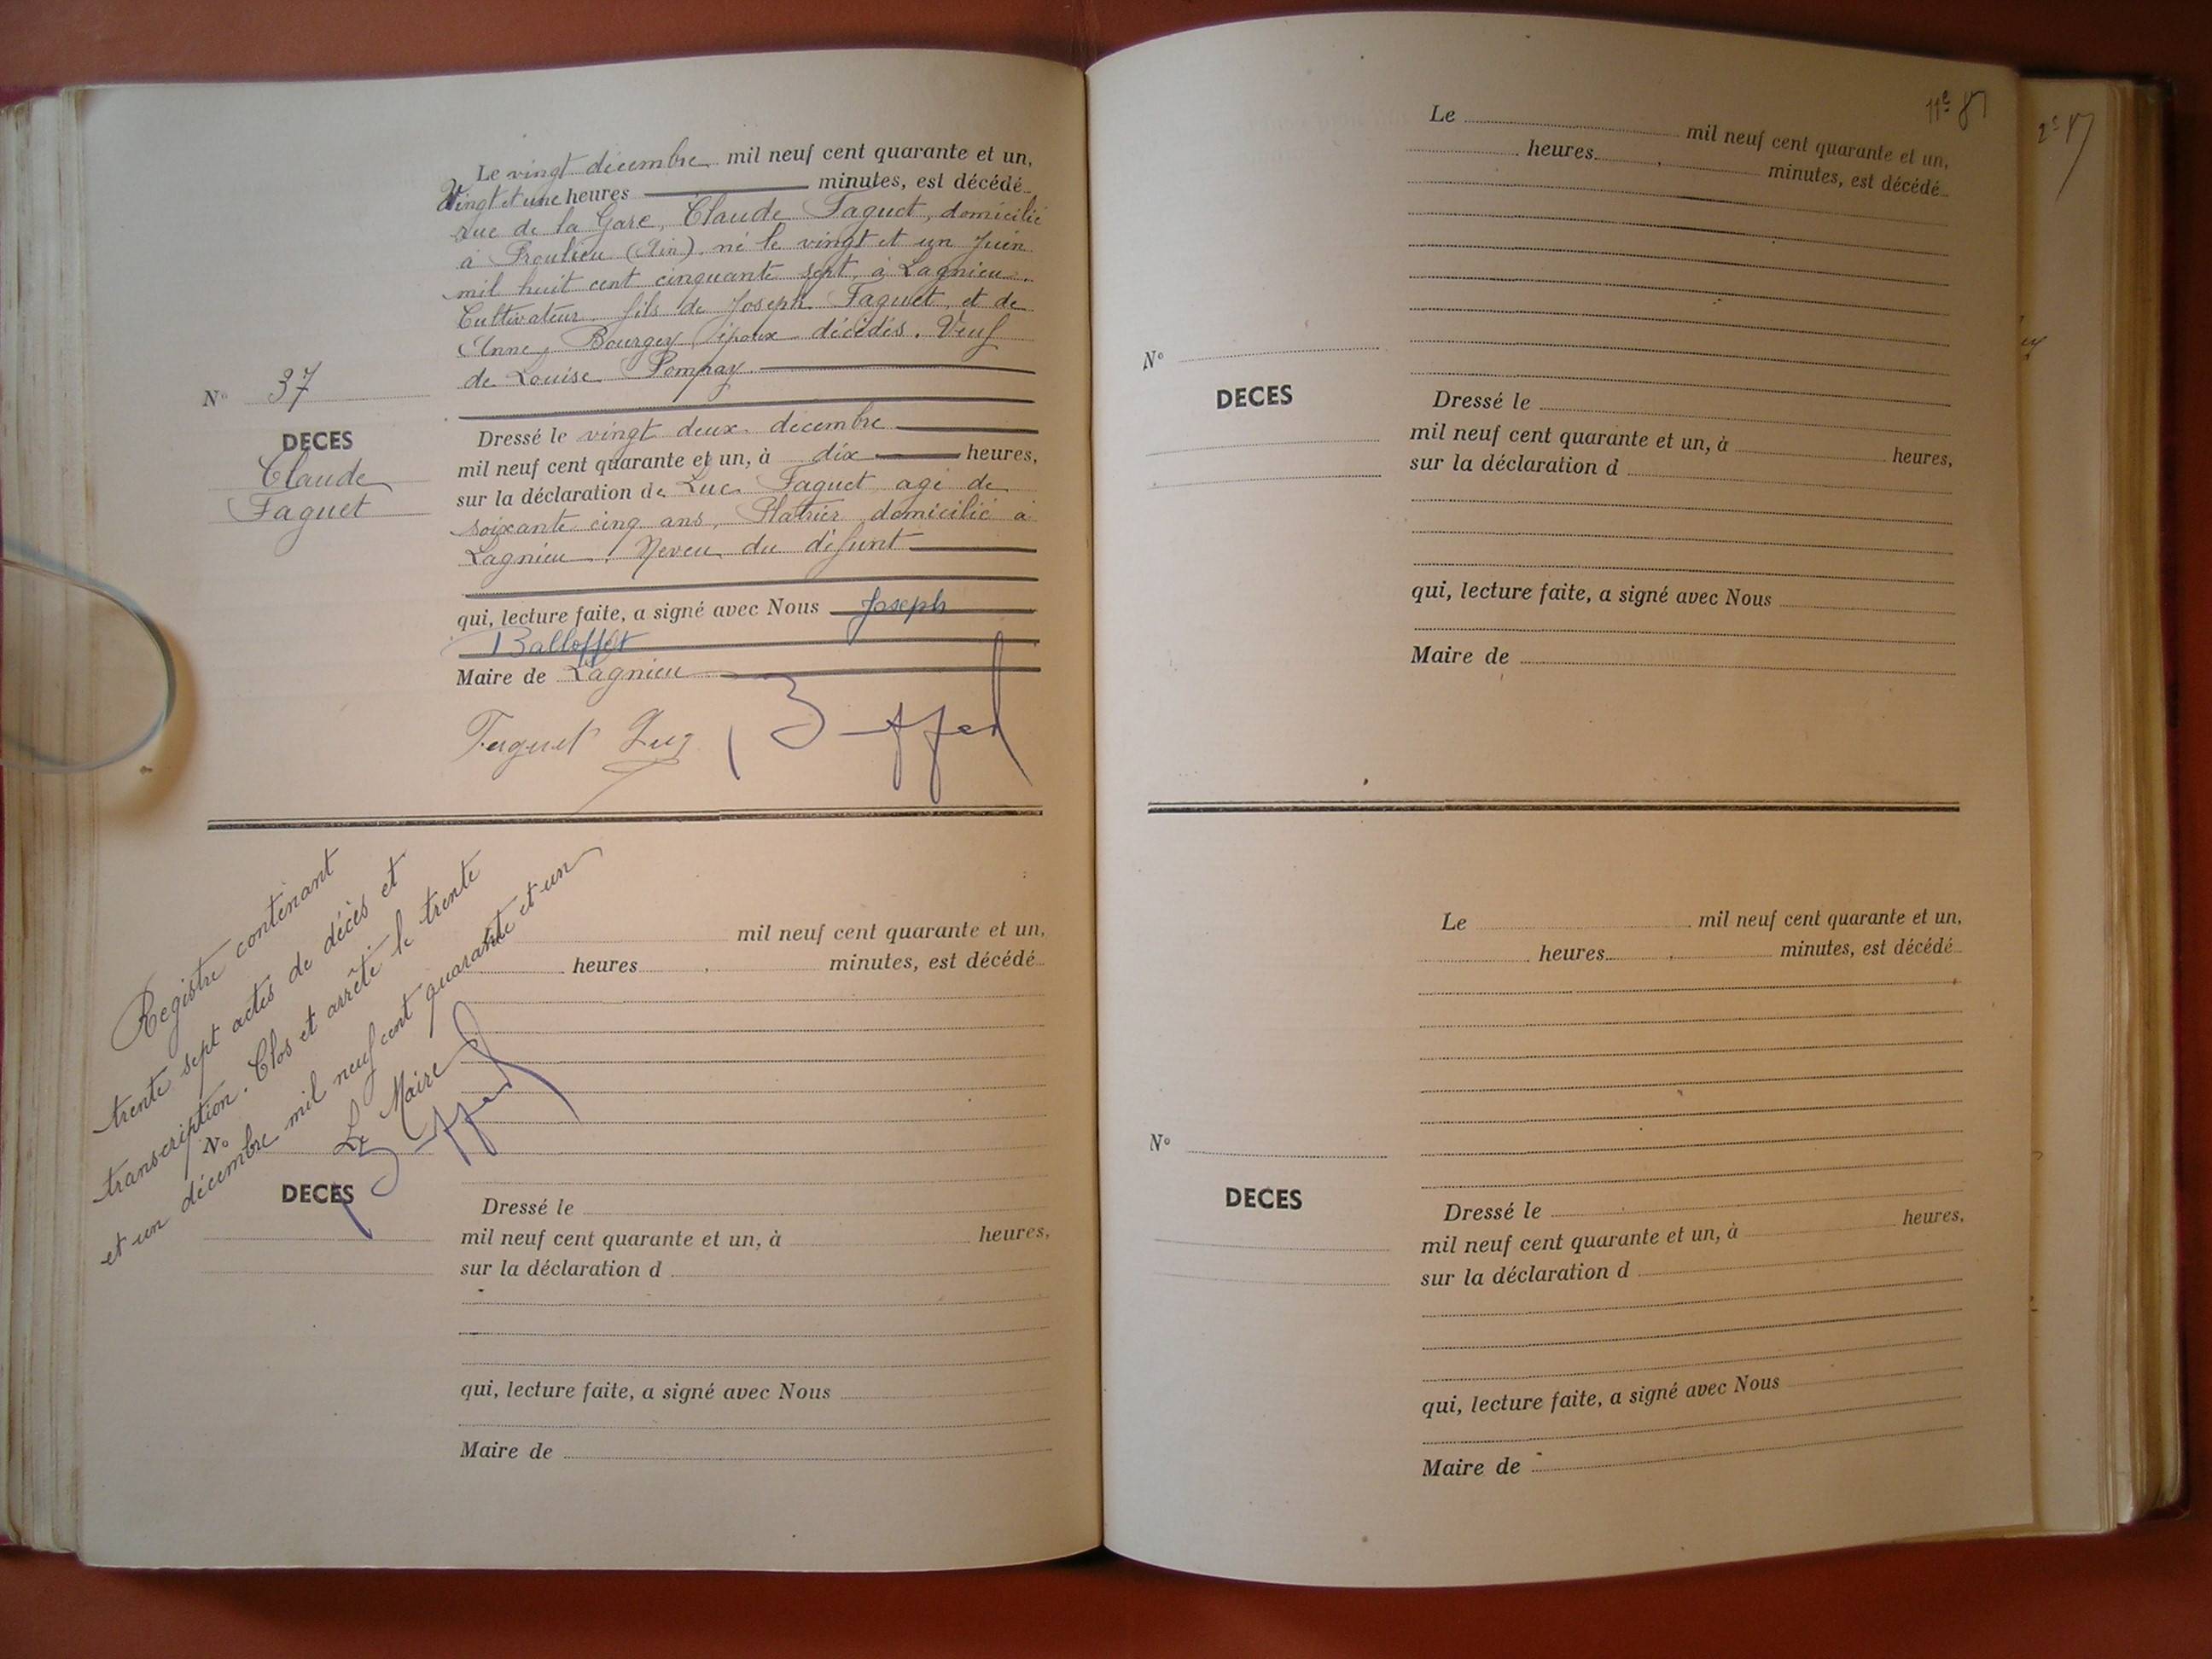 Le vingt décembre mil neuf cent quarante et un,
Vingt et une heures minutes, est décédé
rue de la Gare, Claude Faguet, domicilié
à Proulieu (Ain), né le vingt et un Juin
mil huit cent cinquante sept, à Lagnieu.
Cultivateur. fils de Joseph Faguet et de
Anne, Bourgey, époux décédés. Veuf
de Louise Pompay.
N° 37
DECES
Claude
Faguet
Dressé le vingt deux décembre
mil neuf cent quarante et un, à dix heures,
sur la déclaration de Luc Faguet agé de
soixante cinq ans, Platrier domicilié à
Lagnieu, Neveu du défunt
qui, lecture faite, a signé avec Nous Joseph
Balloffet
Maire de Lagnieu
Faguet Luc
Registre contenant
trente sept actes de décès et
transcription. Clos et arrêté le trente
et un décembre mil neuf cent quarante et un
Le Maire
mil neuf cent quarante et un,
heures minutes, est décédé
N°
DECES
Dressé le
mil neuf cent quarante et un, à heures,
sur la déclaration d
qui, lecture faite, a signé avec Nous
Maire de
11e
2e
Le mil neuf cent quarante et un,
heures, minutes, est décédé
N°
DECES
Dressé le
mil neuf cent quarante et un, à heures,
sur la déclaration d
qui, lecture faite, a signé avec Nous
Maire de
Le mil neuf cent quarante et un,
heures, minutes, est décédé
N°
DECES
Dressé le
mil neuf cent quarante et un, à heures,
sur la déclaration d
qui, lecture faite, a signé avec Nous
Maire de